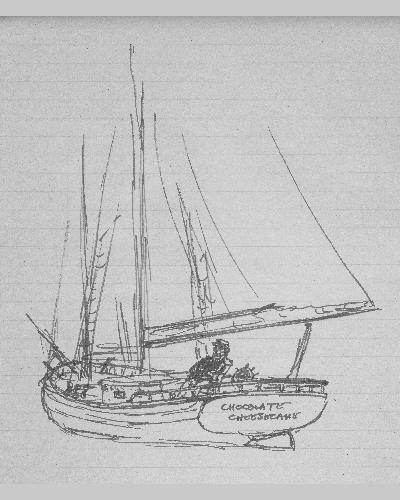 CHOCOLATE
CHEESECAKE